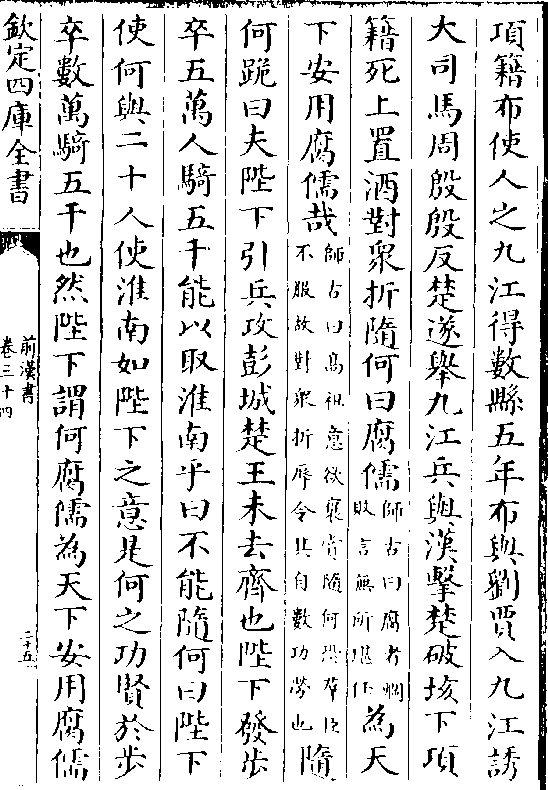 項籍布使人之九江得數縣五年布與劉賈入九江誘
大司馬周殷殷反楚遂舉九江兵與漢擊楚破垓下項
籍死上置酒對衆折隨何曰腐儒師古曰腐者爛敗言無所堪任為天
下安用腐儒哉師古曰高祖意欲褒賞隨何恐羣臣不服故對衆折辱令其自數功勞也隨
何跪曰夫陛下引兵攻彭城楚王未去齊也陛下發步
卒五萬人騎五千能以取淮南乎曰不能隨何曰陛下
使何與二十人使淮南如陛下之意是何之功賢於步
卒數萬騎五千也然陛下謂何腐儒為天下安用腐儒
欽定四庫全書
前漢書
卷三十四
二十五